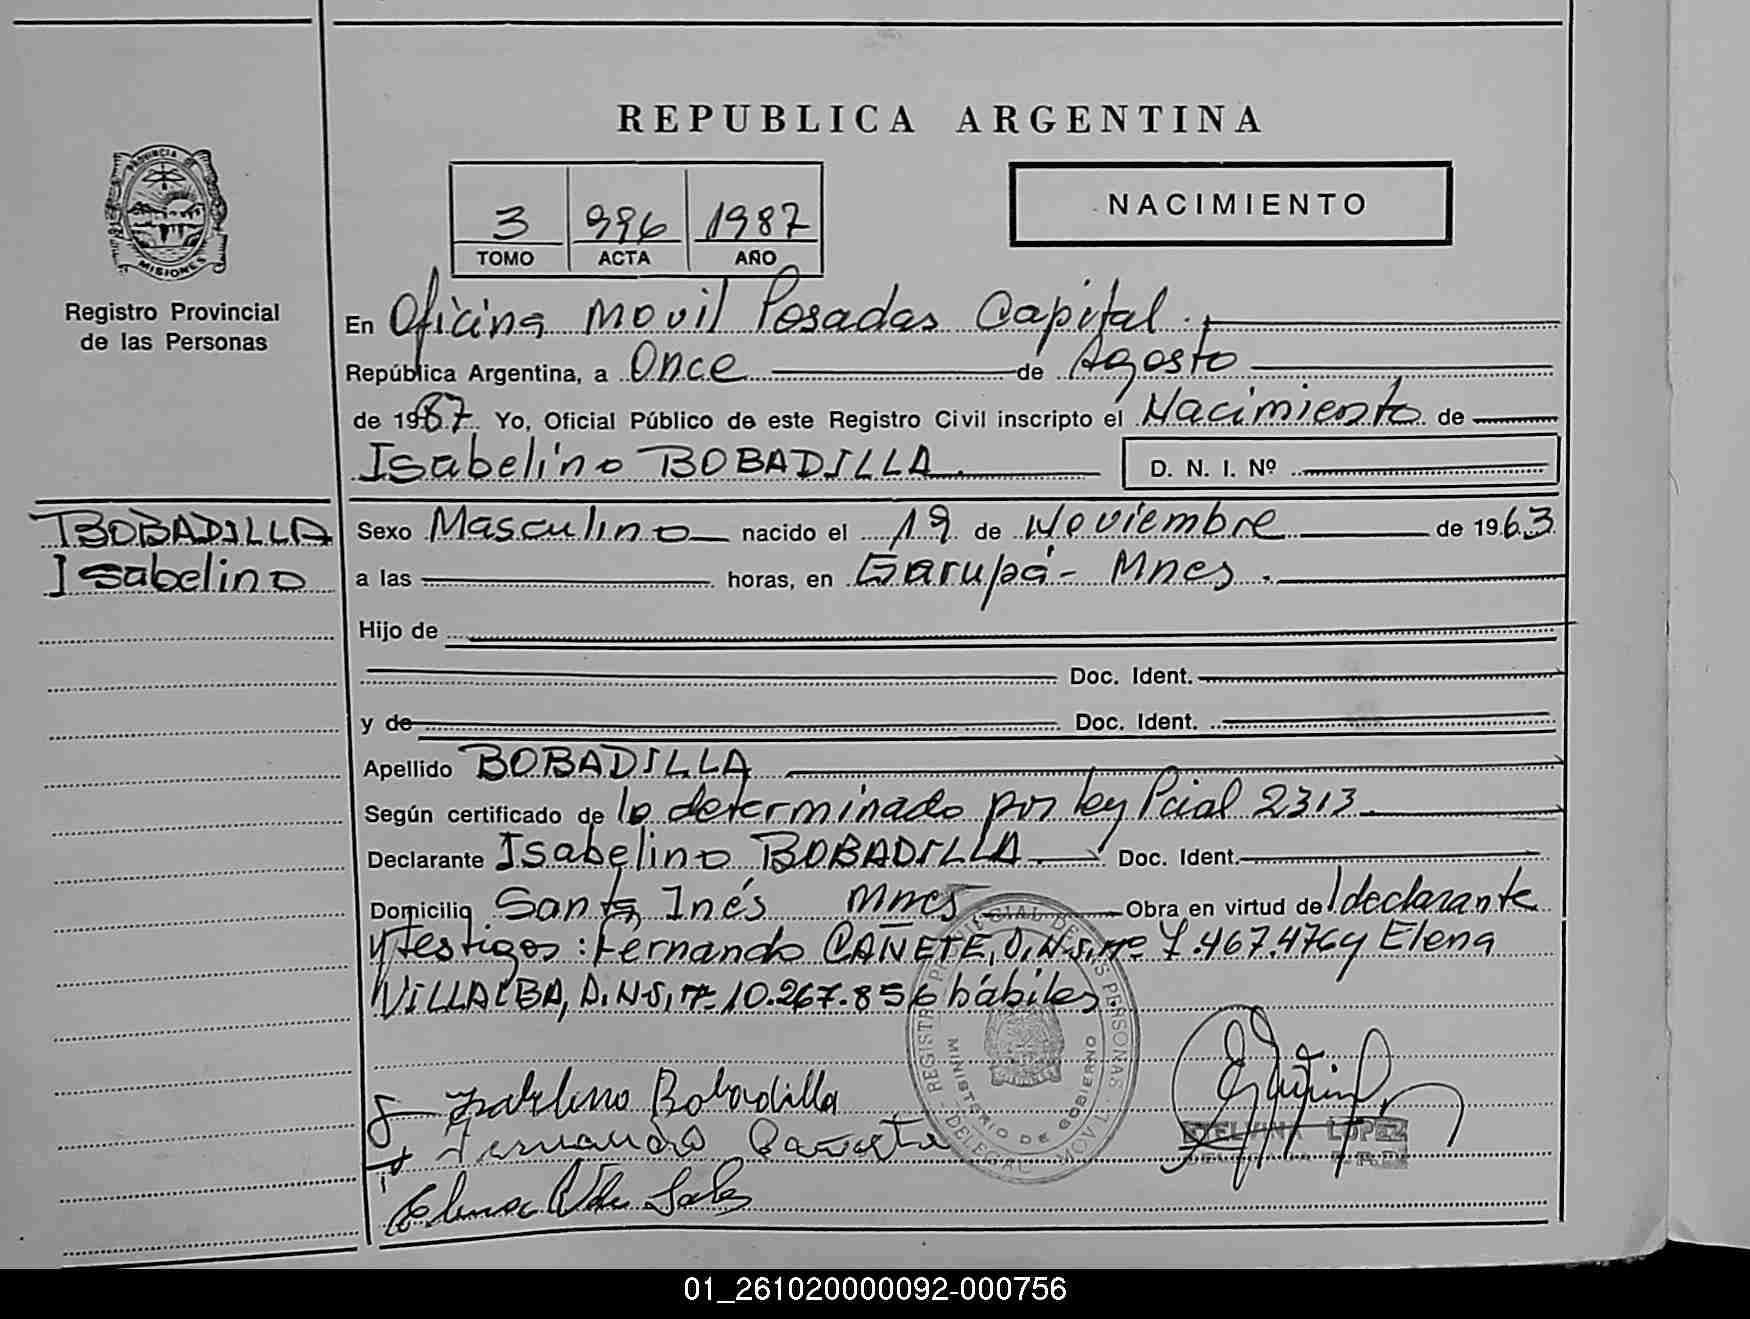 REPUBLICA ARGENTINA
PROVINCIA DE
MISIONES
Registro Provincial
de las Personas
3 996 1987
TOMO ACTA AÑO
NACIMIENTO
En Oficina Movil Posadas Capital.
República Argentina, a Once de Agosto
de 1987. Yo, Oficial Público de este Registro Civil inscripto el Nacimiento de
Isabelino BOBADILLA. D. N. I. Nº
BOBADILLA
Isabelino
Sexo Masculino nacido el 19 de Noviembre de 1963
a las horas, en Garupá - Mnes.
Hijo de
Doc. Ident.
y de Doc. Ident.
Apellido BOBADILLA
Según certificado de lo determinado por ley Pcial 2313
Declarante Isabelino BOBADILLA. Doc. Ident.
Domicilio Santa Inés Mnes Obra en virtud de declarante
y testigos: Fernando CAÑETE, D.N.I. nº 7.467.476 y Elena
VILLALBA, D.N.I. nº 10.267.856 hábiles
REGISTRO PROVINCIAL DE LAS PERSONAS - DELEGAC. MOVIL
MINISTERIO DE GOBIERNO
Bobadilla
Fernando Cañete
Elena
ETELVINA LOPEZ
01_261020000092-000756